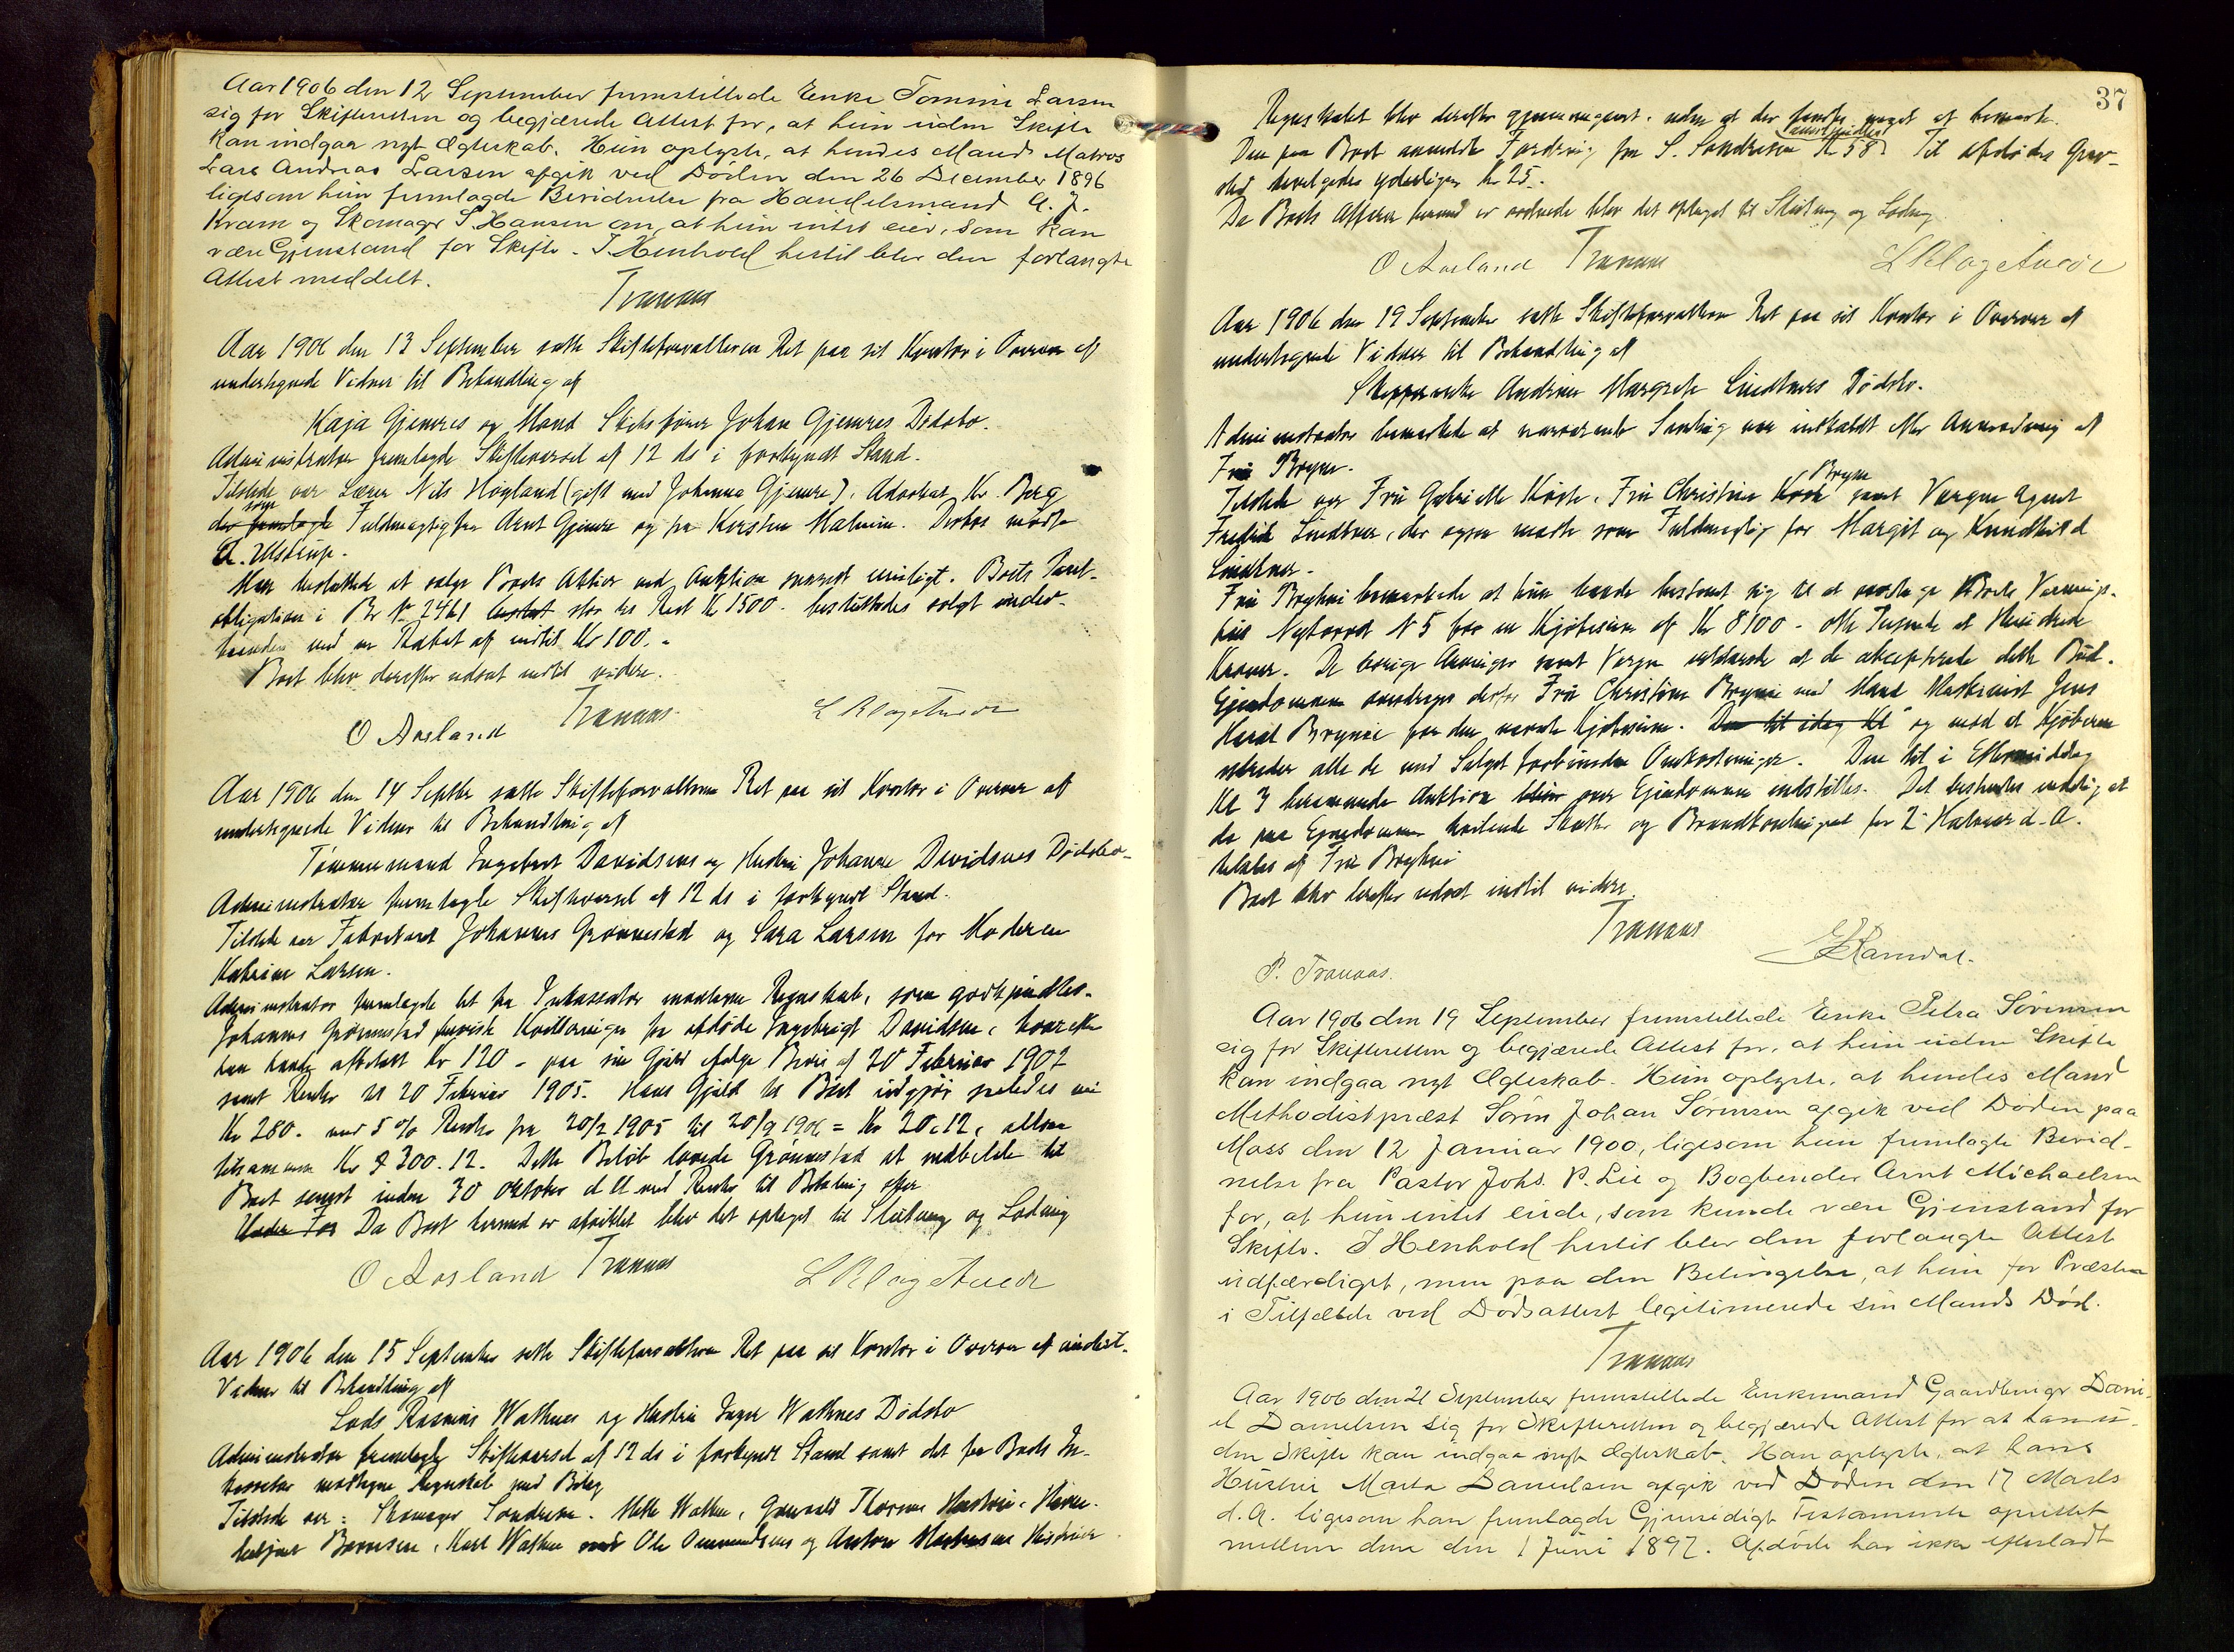 Aar 1906 den 12 September fremstillede Enke Tomine Larsen
sig for Skifteretten og begjærede Attest for, at hun uden Skifte
kan indgaa nyt Ægteskab. Hun oplyste, at hendes Mand Matros
Lars Andreas Larsen afgik ved Døden den 26 December 1896
ligesom hun fremlagde Bevidnelse fra Handelsmand A. J.
Kvam og Skomager S. Hansen om, at hun intet eier, som kan
være Gjenstand for Skifte. I Henhold hertil blev den forlangte
Attest meddelt.
Tranaas
Aar 1906 den 13 September satte Skifteforvalteren Ret paa sit Kontor i Overvær af
undertegnede Vidner til Behandling af
Kaja Gjemres og Mand Skibsfører Johan Gjemres Dødsbo.
Administrator fremlagde Skiftevarsel af 12 ds i forkyndt Stand.
Tilstede var Lærer Nils Høgland (gift med Johanna Gjemre), Advokat Kr. Berg
som
der fremlagde Fuldmagt fra Arnt Gjemre og fra Kirsten Malmin. Desuden mødte
A. Ulstrup.
Man besluttede at sælge Boets Aktier ved Auktion snarest muligt. Boets Pant-
obligation i Br No 2461 stor til Rest Kr 1500. besluttedes solgt under-
haanden med en Rabat af indtil Kr 100.-
Boet blev derefter udsat indtil videre.
O Aasland Tranaas L Klagetvedt
Aar 1906 den 14 Septbr satte Skifteforvalteren Ret paa sit Kontor i Overvær af
undertegnede Vidner til Behandling af
Tømmermand Ingebret Davidsens og Hustru Johanne Davidsens Dødsbo.
Administrator fremlagde Skiftevarsel af 12 ds i forkyndt Stand.
Tilstede var Johannes Grønnestad og Sara Larsen for Moderen
Katrine Larsen.
Administrator fremlagde det fra Inkassator modtagne Regnskab, som godkjendtes.
Johannes Grønnestad foreviste Kvitteringer fra afdøde Ingebrigt Davidsen, hvorefter
han havde afbetalt Kr 120 - paa sin Gjæld ifølge Bevis af 20 Februar 1902
samt Renter til 20 Februar 1905. Hans Gjæld til Boet udgjør saaledes nu
Kr 280. med 5 % Rente fra 20/2 1905 til 20/9 1906 = Kr 20.12, altsaa
tilsammen Kr 300.12. Dette Beløb lovede Grønnestad at indbetale til
Boet senest inden 30 Oktober d A med Renter til Betaling sker.
Under For Da Boet hermed er afviklet blev det optaget til Slutning og Lodning
O Aasland Tranaas L Klagetvedt
Aar 1906 den 15 September satte Skifteforvalteren Ret paa sit Kontor i Overvær af undert.
Vidner til Behandling af
Lods Rasmus Wathnes og Hustru Inger Wathnes Dødsbo
Administrator fremlagde Skiftevarsel af 12 ds i forkyndt Stand samt det fra Boets In-
kassator modtagne Regnskab med Bilag
Tilstede var: Skomager Sondresen. Mette Wathne, Thorsens Hustru,
Børnesen, Karl Wathne Ole Ommundsens og Anton Hustruer
37
Regnskabet blev derefter gjennemgaaet, uden at der fandtes noget at bemærke.
Den paa Boet anmeldte Fordring fra S. Sondresen Kr 58. Til afdødes Grav-
sted bevilgedes yderligere Kr 25.
Da Boets Affærer hermed er ordnede blev det optaget til Slutning og Lodning
O Aasland Tranaas L Klagetvedt
Aar 1906 den 19 September satte Skifteforvalteren Ret paa sit Kontor i Overvær af
undertegnede Vidner til Behandling af
Skipperenke Andrine Margrete Lindtners Dødsbo.
Administrator bemærkede at nærværende Samling var indkaldt efter Anmodning af
Fru Bryne.
Bryne
Tilstede var Fru Gabrielle Kirste, Fru Christine samt Værgen Agent
Fredrik Lindtner, der ogsaa mødte som Fuldmægtig for Margit og
Lindtner.
Fru bemærkede at hun havde bestemt sig til at overtage Boets Vaanings-
hus Nytorvet N 5 for en Kjøbesum af Kr 8100 - otte Tusinde et Hundrede
Kroner. De øvrige Arvinger samt Værgen erklærede at de akcepterede dette Bud.
Eiendommen overdrages derfor Fru Christine Bryne med Mand Maskinist Jens
Bryne for den nævnte Kjøbesum. Den til idag Kl og mod at Kjøberen
udreder alle de med Salget forbundne Omkostninger. Den til i Eftermiddag
Kl 3 berammede Auktion over Eiendommen indstilles. Det bestemtes endelig at
de paa Eiendommen heftende Skatter og Brandkontingent for 2 Halvaar d. A.
betales af Fru
Boet blev derefter udsat indtil videre.
Tranaas
P. Tranaas. Ramdal.
Aar 1906 den 19 September fremstillede Enke Petra Sørensen
sig for Skifteretten og begjærede Attest for, at hun uden Skifte
kan indgaa nyt Ægteskab. Hun oplyste, at hendes Mand
Methodistpræst Søren Johan Sørensen afgik ved Døden paa
Moss den 12 Januar 1900, ligesom hun fremlagte Bevid-
nelse fra Pastor Johs. P. Lie og Bogbender Arnt Michaelsen
for, at hun intet eiede, som kunde være Gjenstand for
Skifte. I Henhold hertil blev den forlangte Attest
udfærdiget, men paa den Betingelse, at hun for Præsten
i Tilfælde ved Dødsattest legitimerede sin Mands Død.
Tranaas
Aar 1906 den 21 September fremstillede Enkemand Gaardbruger Dani-
el Danielsen sig for Skifteretten og begjærede Attest for at han u-
den Skifte kan indgaa nyt Ægteskab. Han oplyste, at hans
Hustru Marta Danielsen afgik ved Døden den 17 Marts
d. A. ligesom han fremlagde Gjensidigt Testamente oprettet
mellem dem den 1 Juni 1897. Afdøde har ikke efterladt